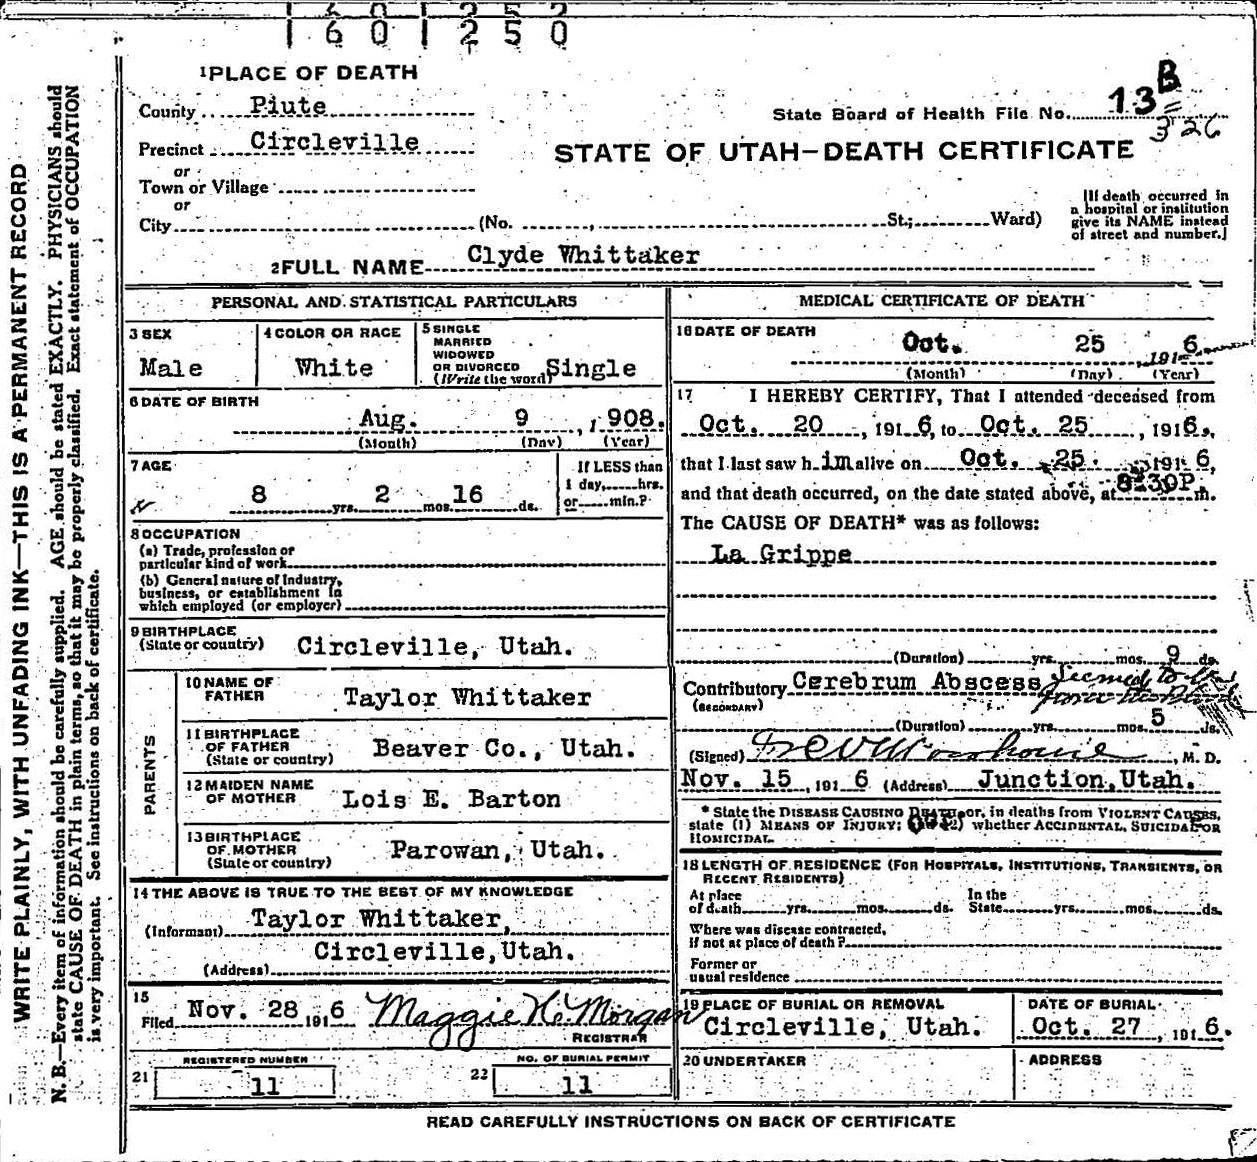 1 6 0 1 2 5 0
1 PLACE OF DEATH
County Piute
State Board of Health File No. 13 B
326
Precinct Circleville
STATE OF UTAH—DEATH CERTIFICATE
or
Town or Village
or
City (No. , St.; Ward)
[If death occurred in
a hospital or institution
give its NAME instead
of street and number.]
2 FULL NAME Clyde Whittaker
PERSONAL AND STATISTICAL PARTICULARS
3 SEX
Male
4 COLOR OR RACE
White
5 SINGLE
MARRIED
WIDOWED
OR DIVORCED
(Write the word) Single
6 DATE OF BIRTH
Aug. 9, 1908.
(Month) (Day) (Year)
7 AGE
8 yrs. 2 mos. 16 ds.
If LESS than
1 day, hrs.
or min.?
8 OCCUPATION
(a) Trade, profession or
particular kind of work
(b) General nature of Industry,
business, or establishment in
which employed (or employer)
9 BIRTHPLACE
(State or country) Circleville, Utah.
PARENTS
10 NAME OF
FATHER Taylor Whittaker
11 BIRTHPLACE
OF FATHER
(State or country) Beaver Co., Utah.
12 MAIDEN NAME
OF MOTHER Lois E. Barton
13 BIRTHPLACE
OF MOTHER
(State or country) Parowan, Utah.
14 THE ABOVE IS TRUE TO THE BEST OF MY KNOWLEDGE
(Informant) Taylor Whittaker,
(Address) Circleville, Utah.
15
Filed Nov. 28 1916 Maggie H. Morgan
REGISTRAR
REGISTERED NUMBER
21 11
NO. OF BURIAL PERMIT
22 11
MEDICAL CERTIFICATE OF DEATH
16 DATE OF DEATH
Oct. 25 1916
(Month) (Day) (Year)
17 I HEREBY CERTIFY, That I attended deceased from
Oct. 20, 1916, to Oct. 25, 1916.,
that I last saw h im alive on Oct. 25. 1916,
and that death occurred, on the date stated above, at 8:30P. m.
The CAUSE OF DEATH* was as follows:
La Grippe
(Duration) yrs. mos. 9 ds.
Contributory Cerebrum Abscess Seemed to be
(SECONDARY)
(Duration) yrs. mos. 5 ds.
(Signed) , M. D.
Nov. 15, 1916 (Address) Junction, Utah.
* State the DISEASE CAUSING DEATH, or, in deaths from VIOLENT CAUSES,
state (1) MEANS OF INJURY; (2) whether ACCIDENTAL, SUICIDAL OR
HOMICIDAL.
18 LENGTH OF RESIDENCE (FOR HOSPITALS, INSTITUTIONS, TRANSIENTS, OR
RECENT RESIDENTS)
At place
of death yrs. mos. ds.
In the
State yrs. mos. ds.
Where was disease contracted,
if not at place of death?
Former or
usual residence
19 PLACE OF BURIAL OR REMOVAL
Circleville, Utah.
DATE OF BURIAL
Oct. 27, 1916.
20 UNDERTAKER
ADDRESS
READ CAREFULLY INSTRUCTIONS ON BACK OF CERTIFICATE
WRITE PLAINLY, WITH UNFADING INK—THIS IS A PERMANENT RECORD
N. B.—Every item of information should be carefully supplied. AGE should be stated EXACTLY. PHYSICIANS should
state CAUSE OF DEATH in plain terms, so that it may be properly classified. Exact statement of OCCUPATION
is very important. See instructions on back of certificate.